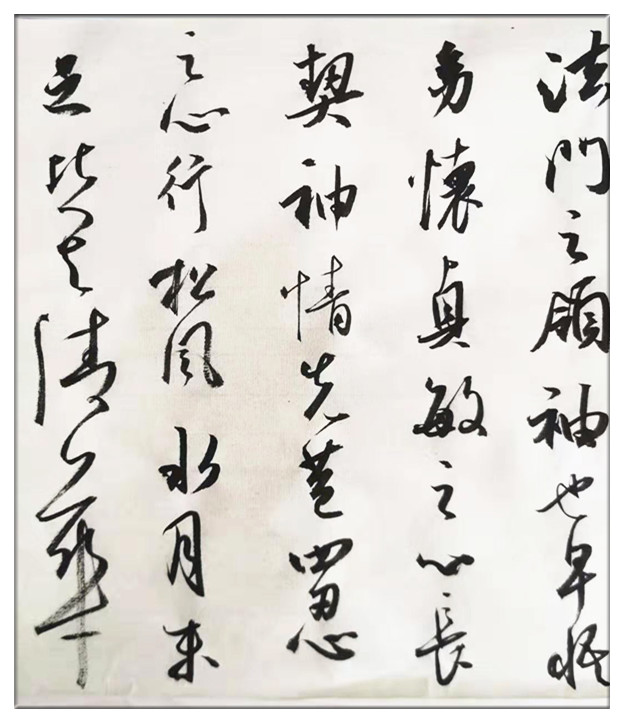 法門之領袖也早
懷貞敏之心長
契神情先苞四忍
之心行松風水月未
足比其清華